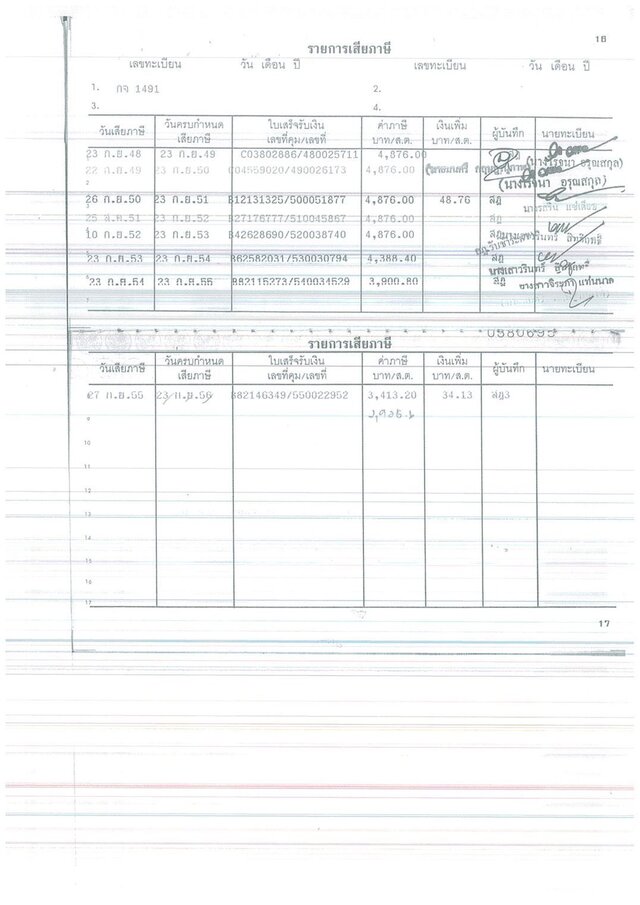 16
รายการเสียภาษี
เลขทะเบียน วัน เดือน ปี เลขทะเบียน วัน เดือน ปี
1. กจ 1491 2.
3. 4.
วันเสียภาษี วันครบกำหนดเสียภาษี ใบเสร็จรับเงิน เลขที่คุม/เลขที่ ค่าภาษี บาท/ส.ต. เงินเพิ่ม บาท/ส.ต. ผู้บันทึก นายทะเบียน
23 ก.ย.48 23 ก.ย.49 C03802886/480025711 4,876.00 (นางโรจนา อรุณสกุล)
22 ก.ย.49 23 ก.ย.50 C04559020/490026173 4,876.00
(นางโรจนา อรุณสกุล)
26 ก.ย.50 23 ก.ย.51 B12131325/500051877 4,876.00 48.76 สฎ
25 ส.ค.51 23 ก.ย.52 B27176777/510045867 4,876.00
10 ก.ย.52 23 ก.ย.53 B42628690/520038740 4,876.00 สฎ
23 ก.ย.53 23 ก.ย.54 B62582031/530030794 4,388.40 สฎ
23 ก.ย.54 23 ก.ย.55 B82115273/540034529 3,900.80 สฎ
0580699
รายการเสียภาษี
วันเสียภาษี วันครบกำหนดเสียภาษี ใบเสร็จรับเงิน เลขที่คุม/เลขที่ ค่าภาษี บาท/ส.ต. เงินเพิ่ม บาท/ส.ต. ผู้บันทึก นายทะเบียน
27 ก.ย.55 23 ก.ย.56 B82146349/550022952 3,413.20 34.13 สฎ3
9
10
11
12
13
14
15
16
17
17